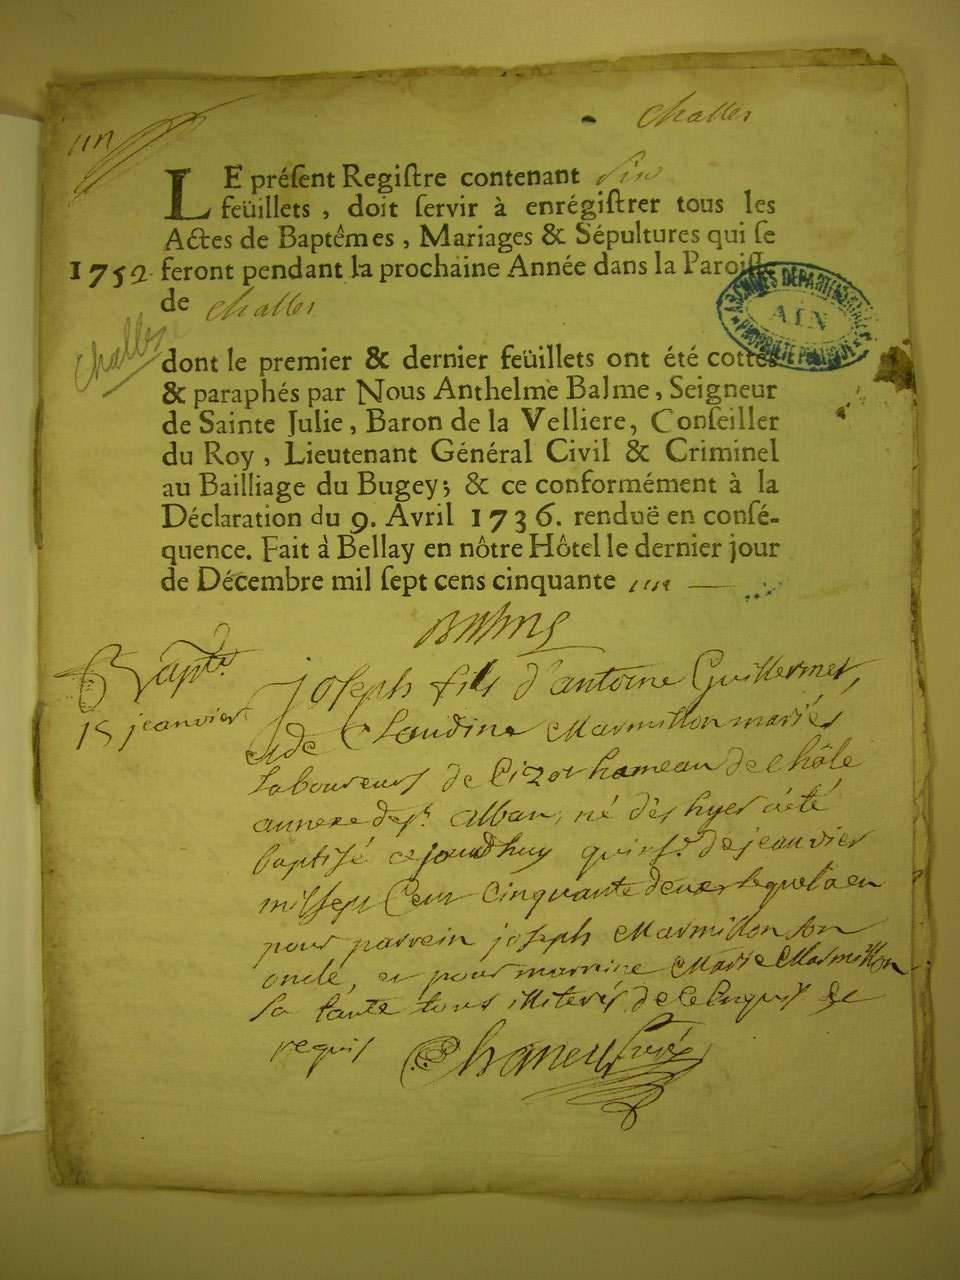 challes
un
LE préſent Regiſtre contenant six
feüillets, doit ſervir à enrégiſtrer tous les
Actes de Baptêmes, Mariages & Sépultures qui ſe
1752. feront pendant la prochaine Année dans la Paroiſſe
de challes
challes
ARCHIVES DÉPARTEMENTALES
AIN
PROPRIÉTÉ PUBLIQUE
dont le premier & dernier feüillets ont été cottés
& paraphés par Nous Anthelme Balme, Seigneur
de Sainte Julie, Baron de la Velliere, Conſeiller
du Roy, Lieutenant Général Civil & Criminel
au Bailliage du Bugey; & ce conformément à la
Déclaration du 9. Avril 1736. renduë en conſé-
quence. Fait à Bellay en nôtre Hôtel le dernier jour
de Décembre mil ſept cens cinquante un
Balme
Bapt.
15 jeanvier
joseph fils d'antoine Guillermet,
& de Claudine Marmillon mariés
laboureurs de Cizot hameau de Chôle
annexe de st. alban, né dès hyer a été
baptisé cejourdhuy quinz. de jeanvier
mil sept Cent Cinquante deux lequel a eu
pour parrein joseph Marmillon son
oncle, et pour marraine Marie Marmillon
sa tante tous illiterés de ce enquis &
requis
Chaney Curé